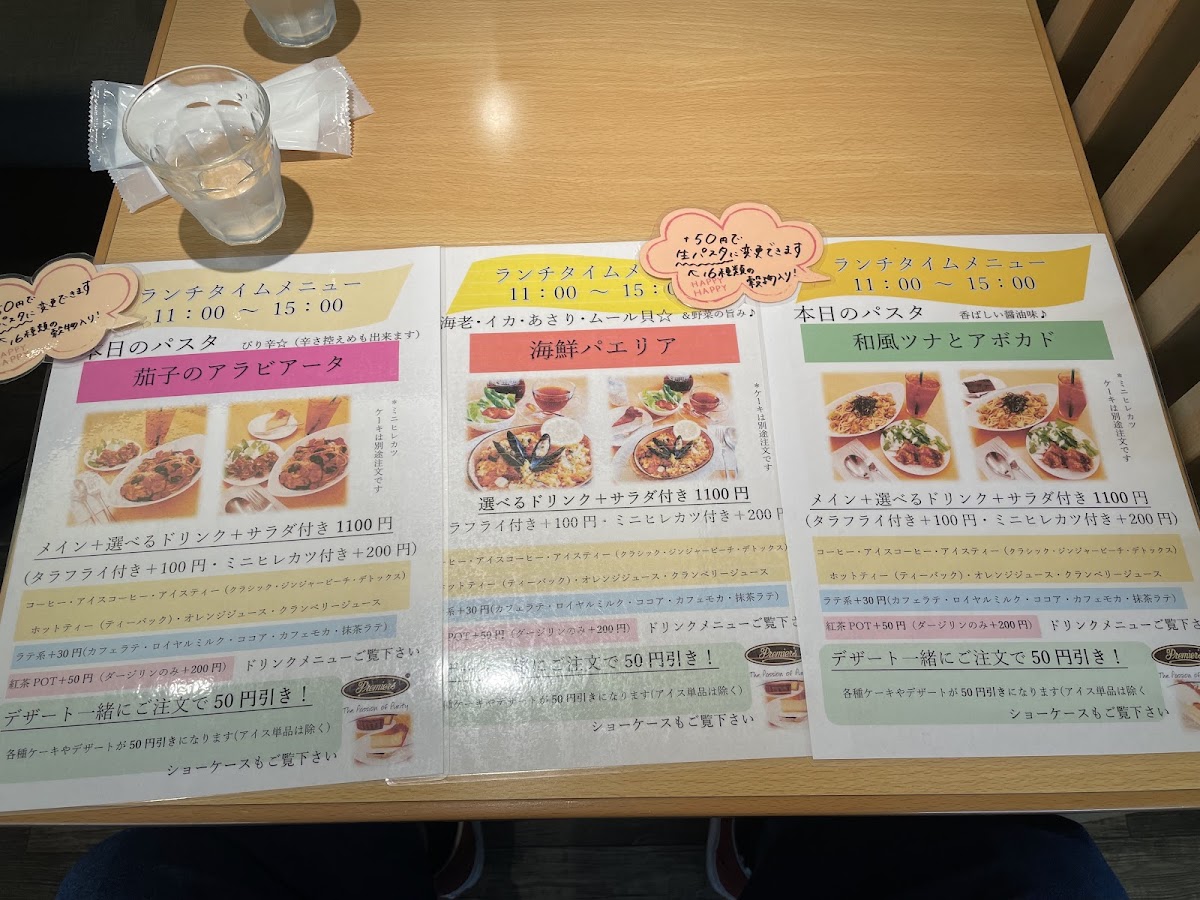 50円で
パスタに変更できます
16種類の
穀物入り!
ランチタイムメニュー
11:00 ~ 15:00
本日のパスタ ぴり辛☆(辛さ控えめも出来ます)
茄子のアラビアータ
*ミニヒレカツ
ケーキは別途注文です
メイン+選べるドリンク+サラダ付き 1100 円
(タラフライ付き+100 円・ミニヒレカツ付き+200 円)
コーヒー・アイスコーヒー・アイスティー(クラシック・ジンジャーピーチ・デトックス)
ホットティー(ティーバック)・オレンジジュース・クランベリージュース
ラテ系+30 円(カフェラテ・ロイヤルミルク・ココア・カフェモカ・抹茶ラテ)
紅茶 POT+50 円(ダージリンのみ+200 円) ドリンクメニューご覧下さい
デザート一緒にご注文で 50 円引き!
各種ケーキやデザートが 50 円引きになります(アイス単品は除く)
ショーケースもご覧下さい
Premier's
The Passion of Purity
+50円で
生パスタに変更できます
16種類の
穀物入り!
HAPPY
HAPPY
ランチタイムメ
11:00 ~ 15:0
海老・イカ・あさり・ムール貝☆ &野菜の旨み♪
海鮮パエリア
*ケーキは別途注文です
選べるドリンク+サラダ付き 1100 円
ラフライ付き+100 円・ミニヒレカツ付き+200 F
ー・アイスコーヒー・アイスティー(クラシック・ジンジャーピーチ・デトックス)
ホットティー(ティーバック)・オレンジジュース・クランベリージュース
系+30 円(カフェラテ・ロイヤルミルク・ココア・カフェモカ・抹茶ラテ)
POT+50 円(ダージリンのみ+200 円) ドリンクメニューご覧下さ
ート一緒にご注文で 50 円引き!
ケーキやデザートが 50 円引きになります(アイス単品は除く)
ショーケースもご覧下さい
Premier's
The Passion of
ランチタイムメニュー
11:00 ~ 15:00
本日のパスタ 香ばしい醤油味♪
和風ツナとアボカド
*ミニヒレカツ
ケーキは別途注文です
メイン+選べるドリンク+サラダ付き 1100 円
(タラフライ付き+100 円・ミニヒレカツ付き+200 円)
コーヒー・アイスコーヒー・アイスティー(クラシック・ジンジャーピーチ・デトックス)
ホットティー(ティーバック)・オレンジジュース・クランベリージュース
ラテ系+30 円(カフェラテ・ロイヤルミルク・ココア・カフェモカ・抹茶ラテ)
紅茶 POT+50 円(ダージリンのみ+200 円) ドリンクメニューご覧下さ
デザート一緒にご注文で 50 円引き!
各種ケーキやデザートが 50 円引きになります(アイス単品は除く
ショーケースもご覧下さい
Premier's
The Passion